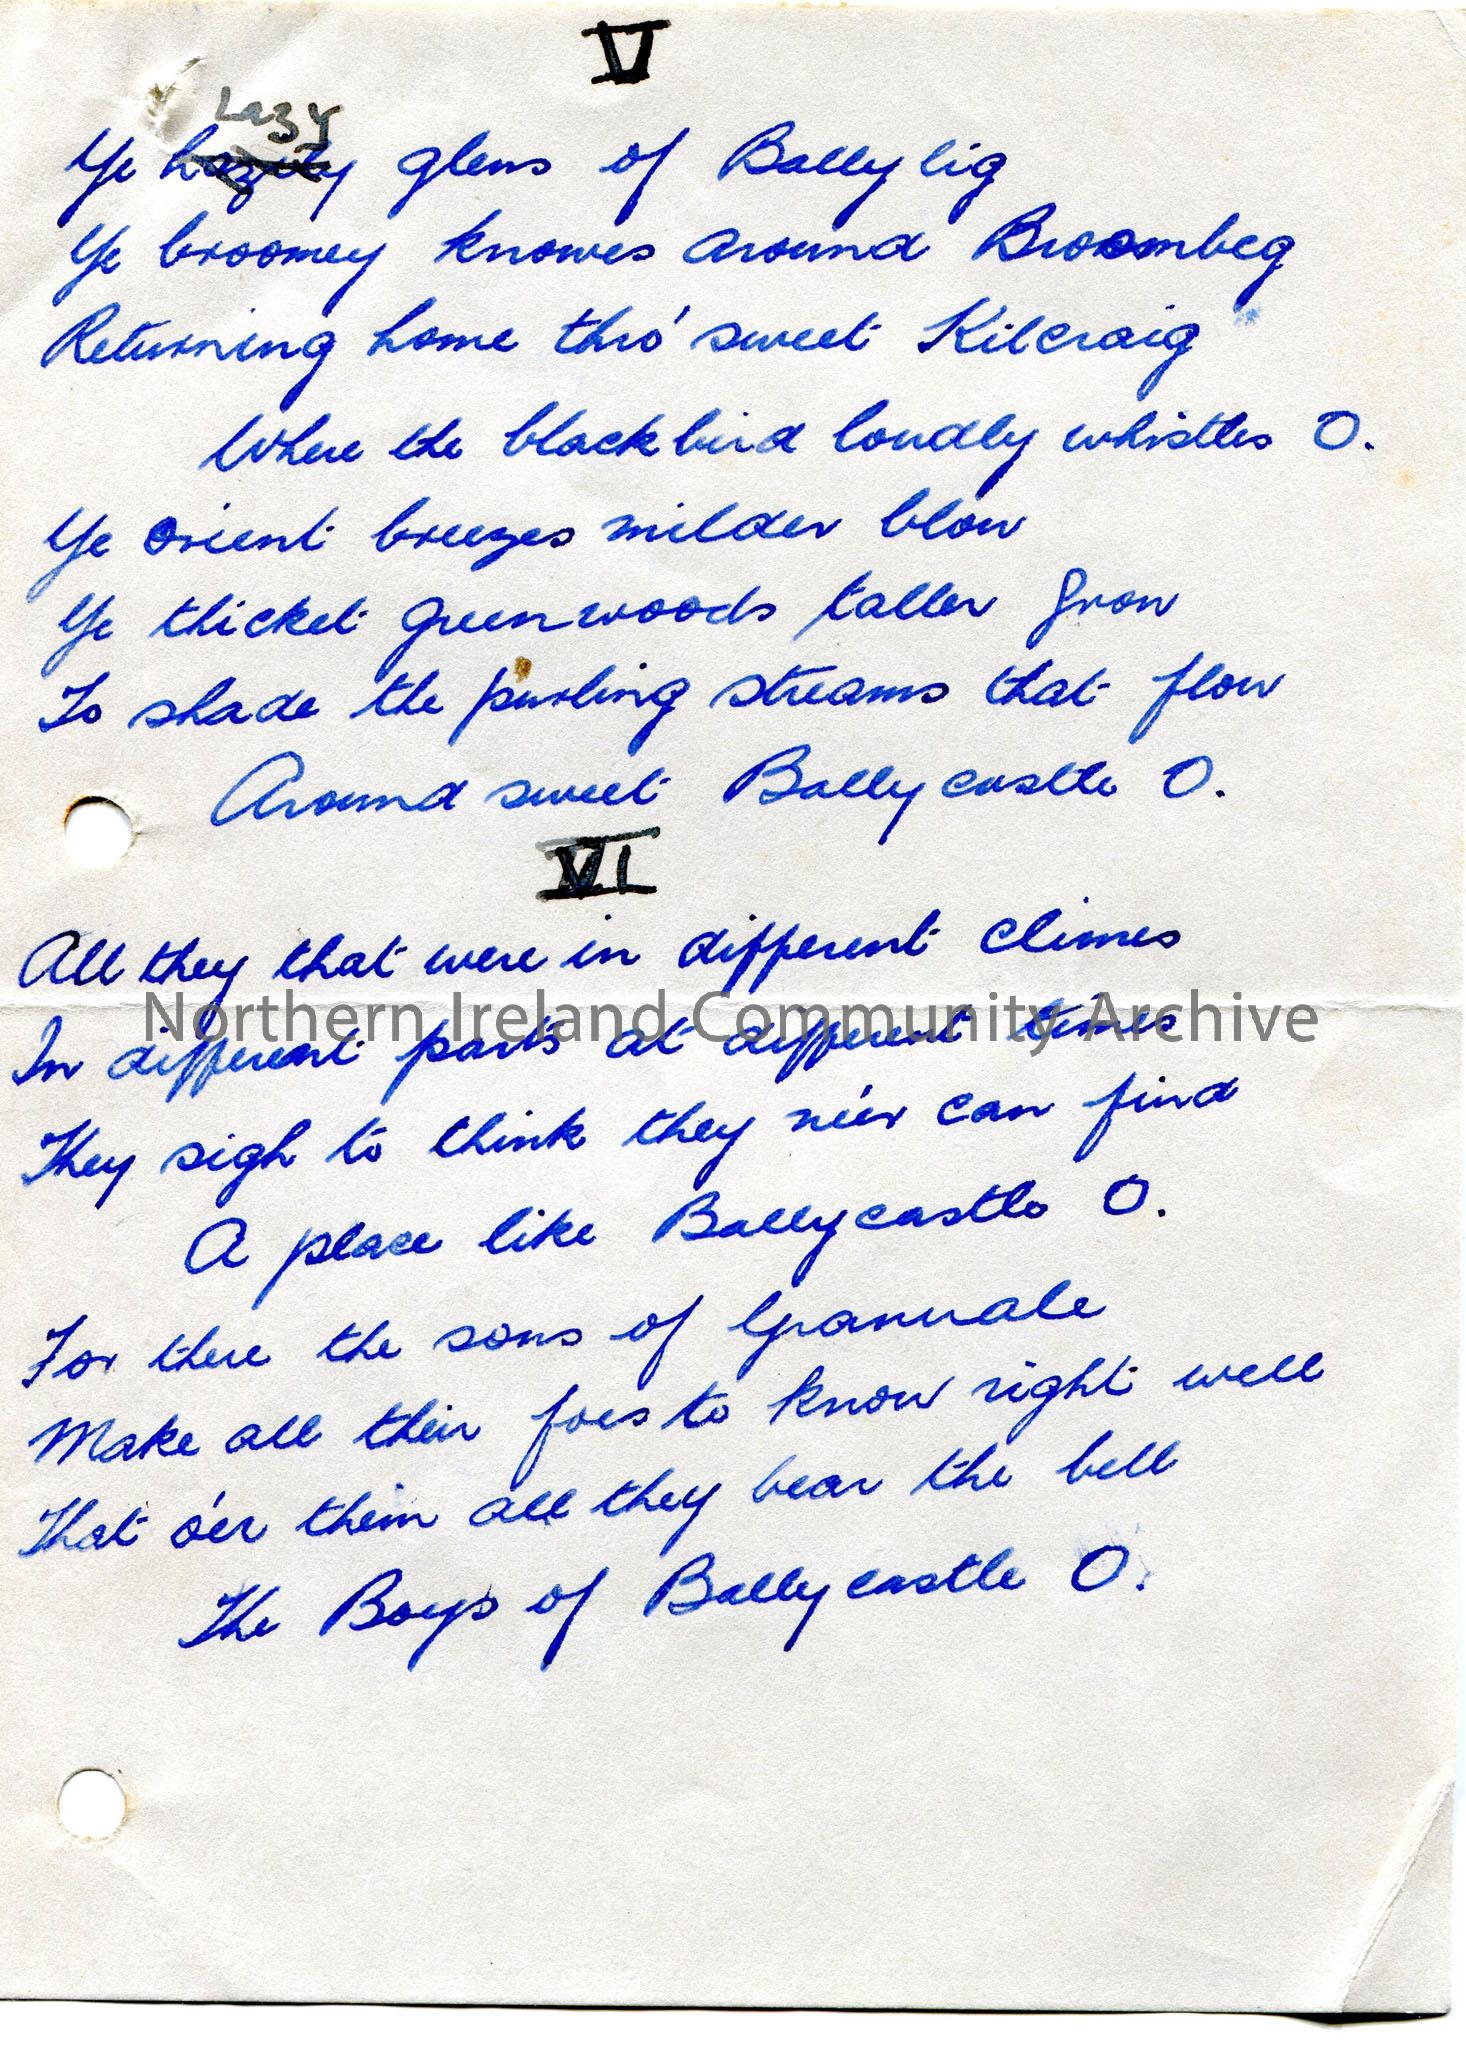 V
Lazy
Ye glens of Ballylig
Ye broomey knowes around Broombeg
Returning home thro' sweet Kilcraig
Where the blackbird loudly whistles O.
Ye orient breezes milder blow
Ye thicket greenwoods taller grow
To shade the purling streams that flow
Around sweet Ballycastle O.
VI
All they that were in different climes
Northern Ireland Community Archive
In different parts at different times
They sigh to think they ne'er can find
A place like Ballycastle O.
For there the sons of Granuale
Make all their foes to know right well
That o'er them all they bear the bell
The Boys of Ballycastle O.